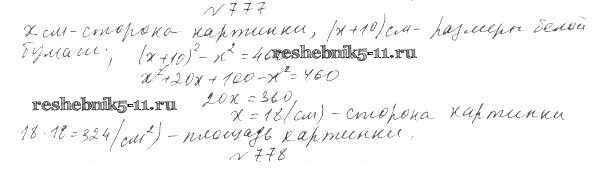 № 777
x см - сторона картинки, (x+10) см - размеры белой
бумаги; (x+10)² - x² = 460
reshebnik5-11.ru
x² + 20x + 100 - x² = 460
reshebnik5-11.ru
20x = 360
x = 18 (см) - сторона картинки
18 · 18 = 324 (см²) - площадь картинки.
№ 778